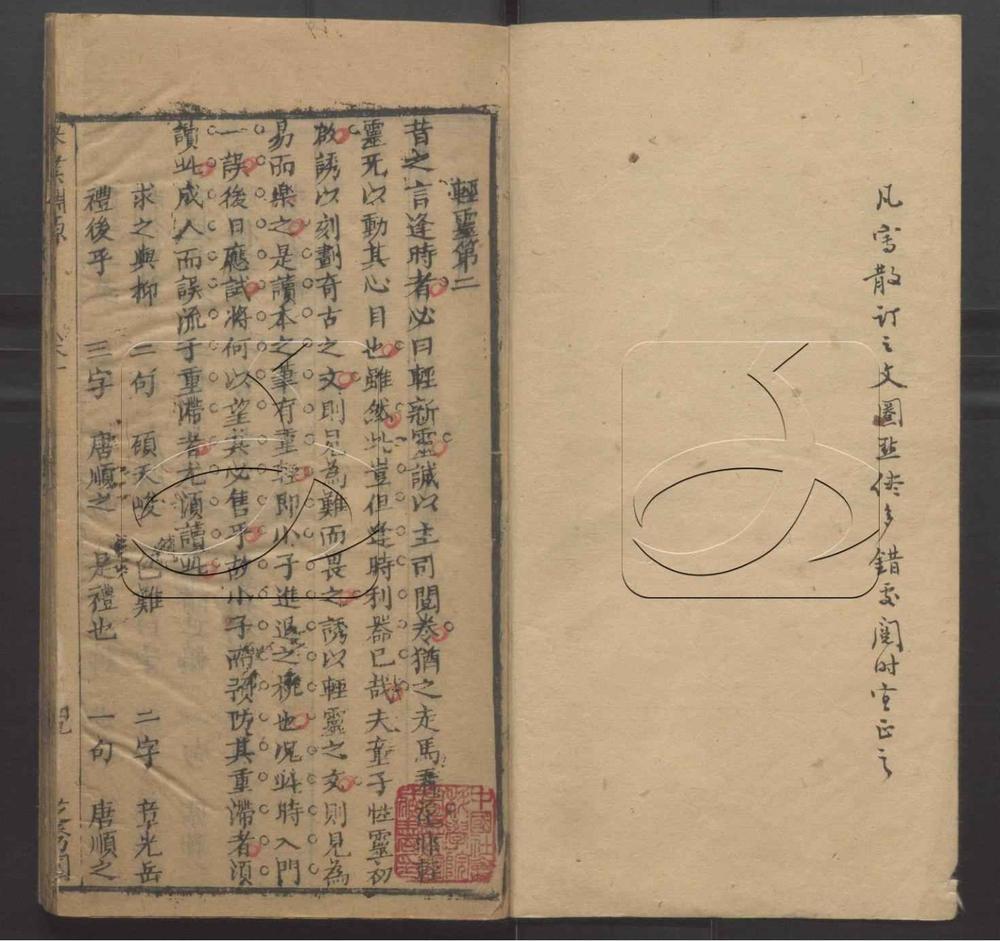 凡寫散訂之文圈點倶多錯要閱时宜正之
輕靈第二
昔之言逢時者必曰輕新靈誠以主司閱卷猶之走馬看花非輕
靈无以動其心目也雖然此豈但逢時利器已哉夫童子性靈初
啟誘以刻劃奇古之文則見為難而畏之誘以輕靈之文則見為
易而樂之是讀本之筆有重輕即小子進退之機也况此時入門
一誤後日應試將何以望其必售乎故小子而預防其重滯者須
讀此成人而誤流于重滯者尤須讀此
求之與抑 二句 顧天峻 色難 二字 章光岳
禮後乎 三字 唐順之 是禮也 一句 唐順之